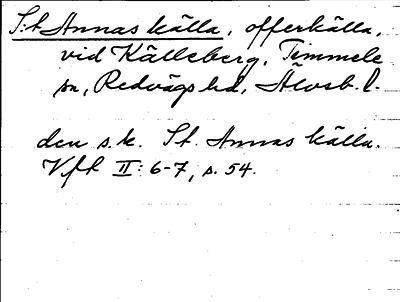 S:t Annas källa, offerkälla,
vid Källeberg, Timmele
sn, Redvägs hd, Älvsb. l.
den s.k. St. Annas källa.
Vfh II: 6-7, s. 54.